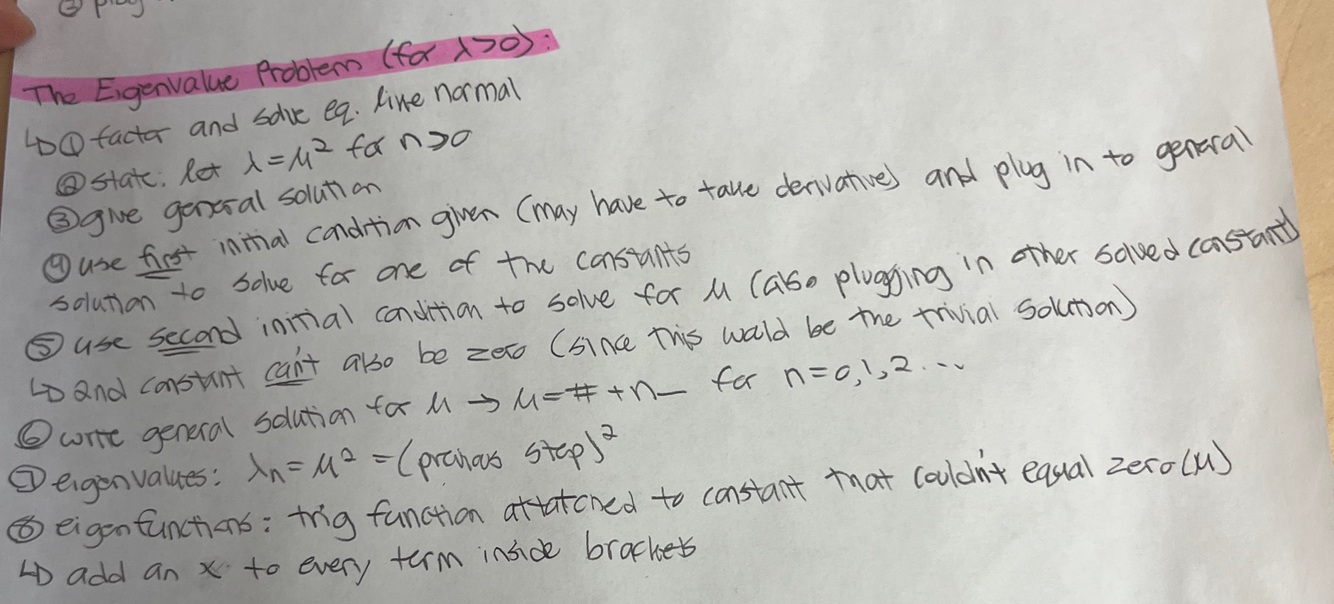 ③ plug
The Eigenvalue Problem (for λ>0):
↳① factor and solve eq. like normal
② state: let λ=μ² for n>0
③ give general solution
④ use first initial condition given (may have to take derivatives) and plug in to general
solution to solve for one of the constants
⑤ use second initial condition to solve for μ (also plugging in other solved constant)
↳ 2nd constant can't also be zero (since this would be the trivial solution)
⑥ write general solution for μ → μ=#+n_ for n=0,1,2...
⑦ eigenvalues: λn=μ²=(previous step)²
⑧ eigenfunctions: trig function attatched to constant that couldn't equal zero(μ)
↳ add an x to every term inside brackets